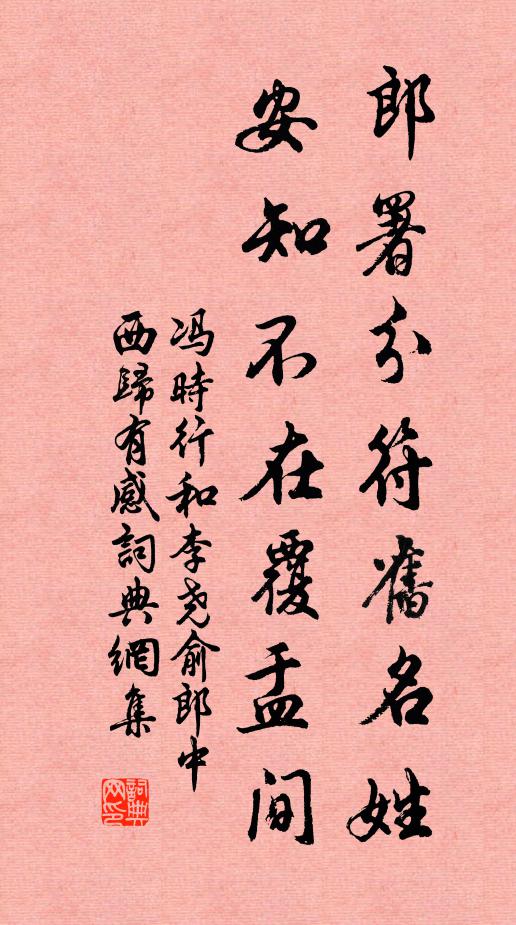 郎署分符舊名姓
安知不在覆盂间
冯時行和李尧俞郎中
西歸有感詞典網集
詞典网印